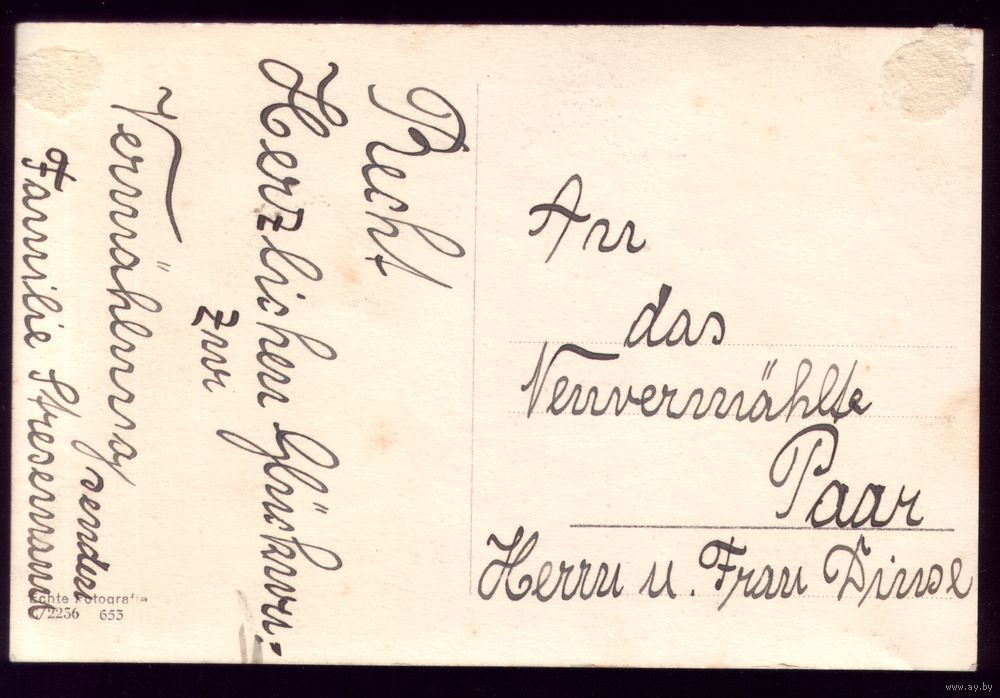 Recht
Herzlichen Glückwun=
zur
Vermählung senden
Familie Stresemann
An
das
Neuvermählte
Paar
Herrn u. Frau
Echte Fotografie
672256 653
www.ay.by